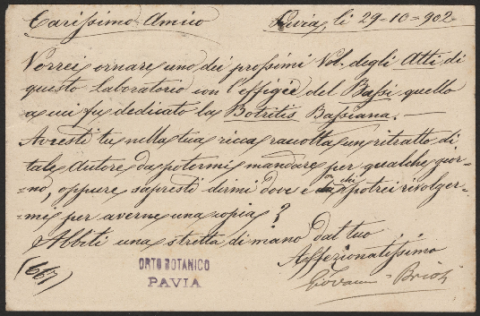 Carissimo Amico
Pavia, li 29-10-902
Vorrei ornare uno dei prossimi Vol. degli Atti di
questo Laboratorio con l'effigie del Bassi quello
a cui fu dedicato la Botritis Bassiana. —
Avresti tu nella tua ricca raccolta un ritratto di
tale Autore da potermi mandare per qualche gior-
no, oppure sapresti dirmi dove potrei rivolger-
mi per averne una copia?
Abbiti una stretta di mano dal tuo
Affezionatissimo
Giovanni Briosi
(667)
ORTO BOTANICO
PAVIA.